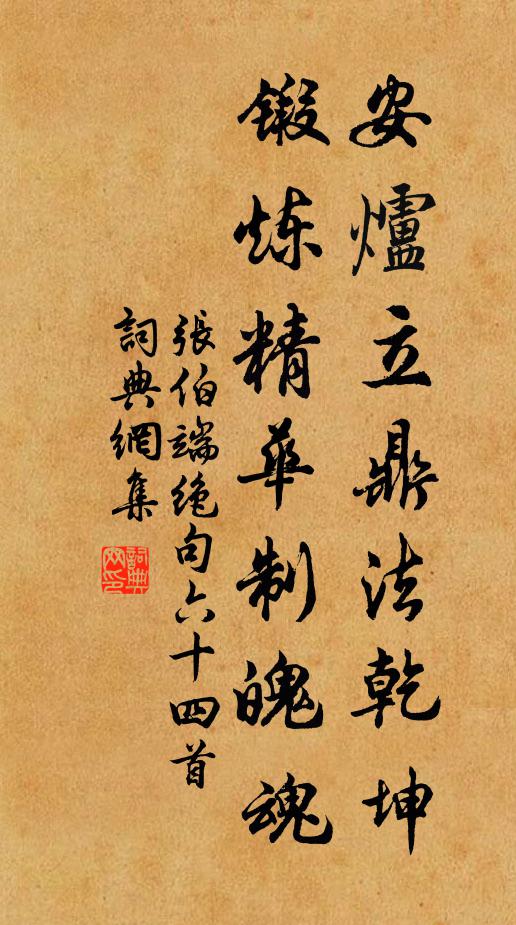 安爐立鼎法乾坤
鍛炼精華制魄魂
張伯端绝句六十四首
詞典網集
詞典網印